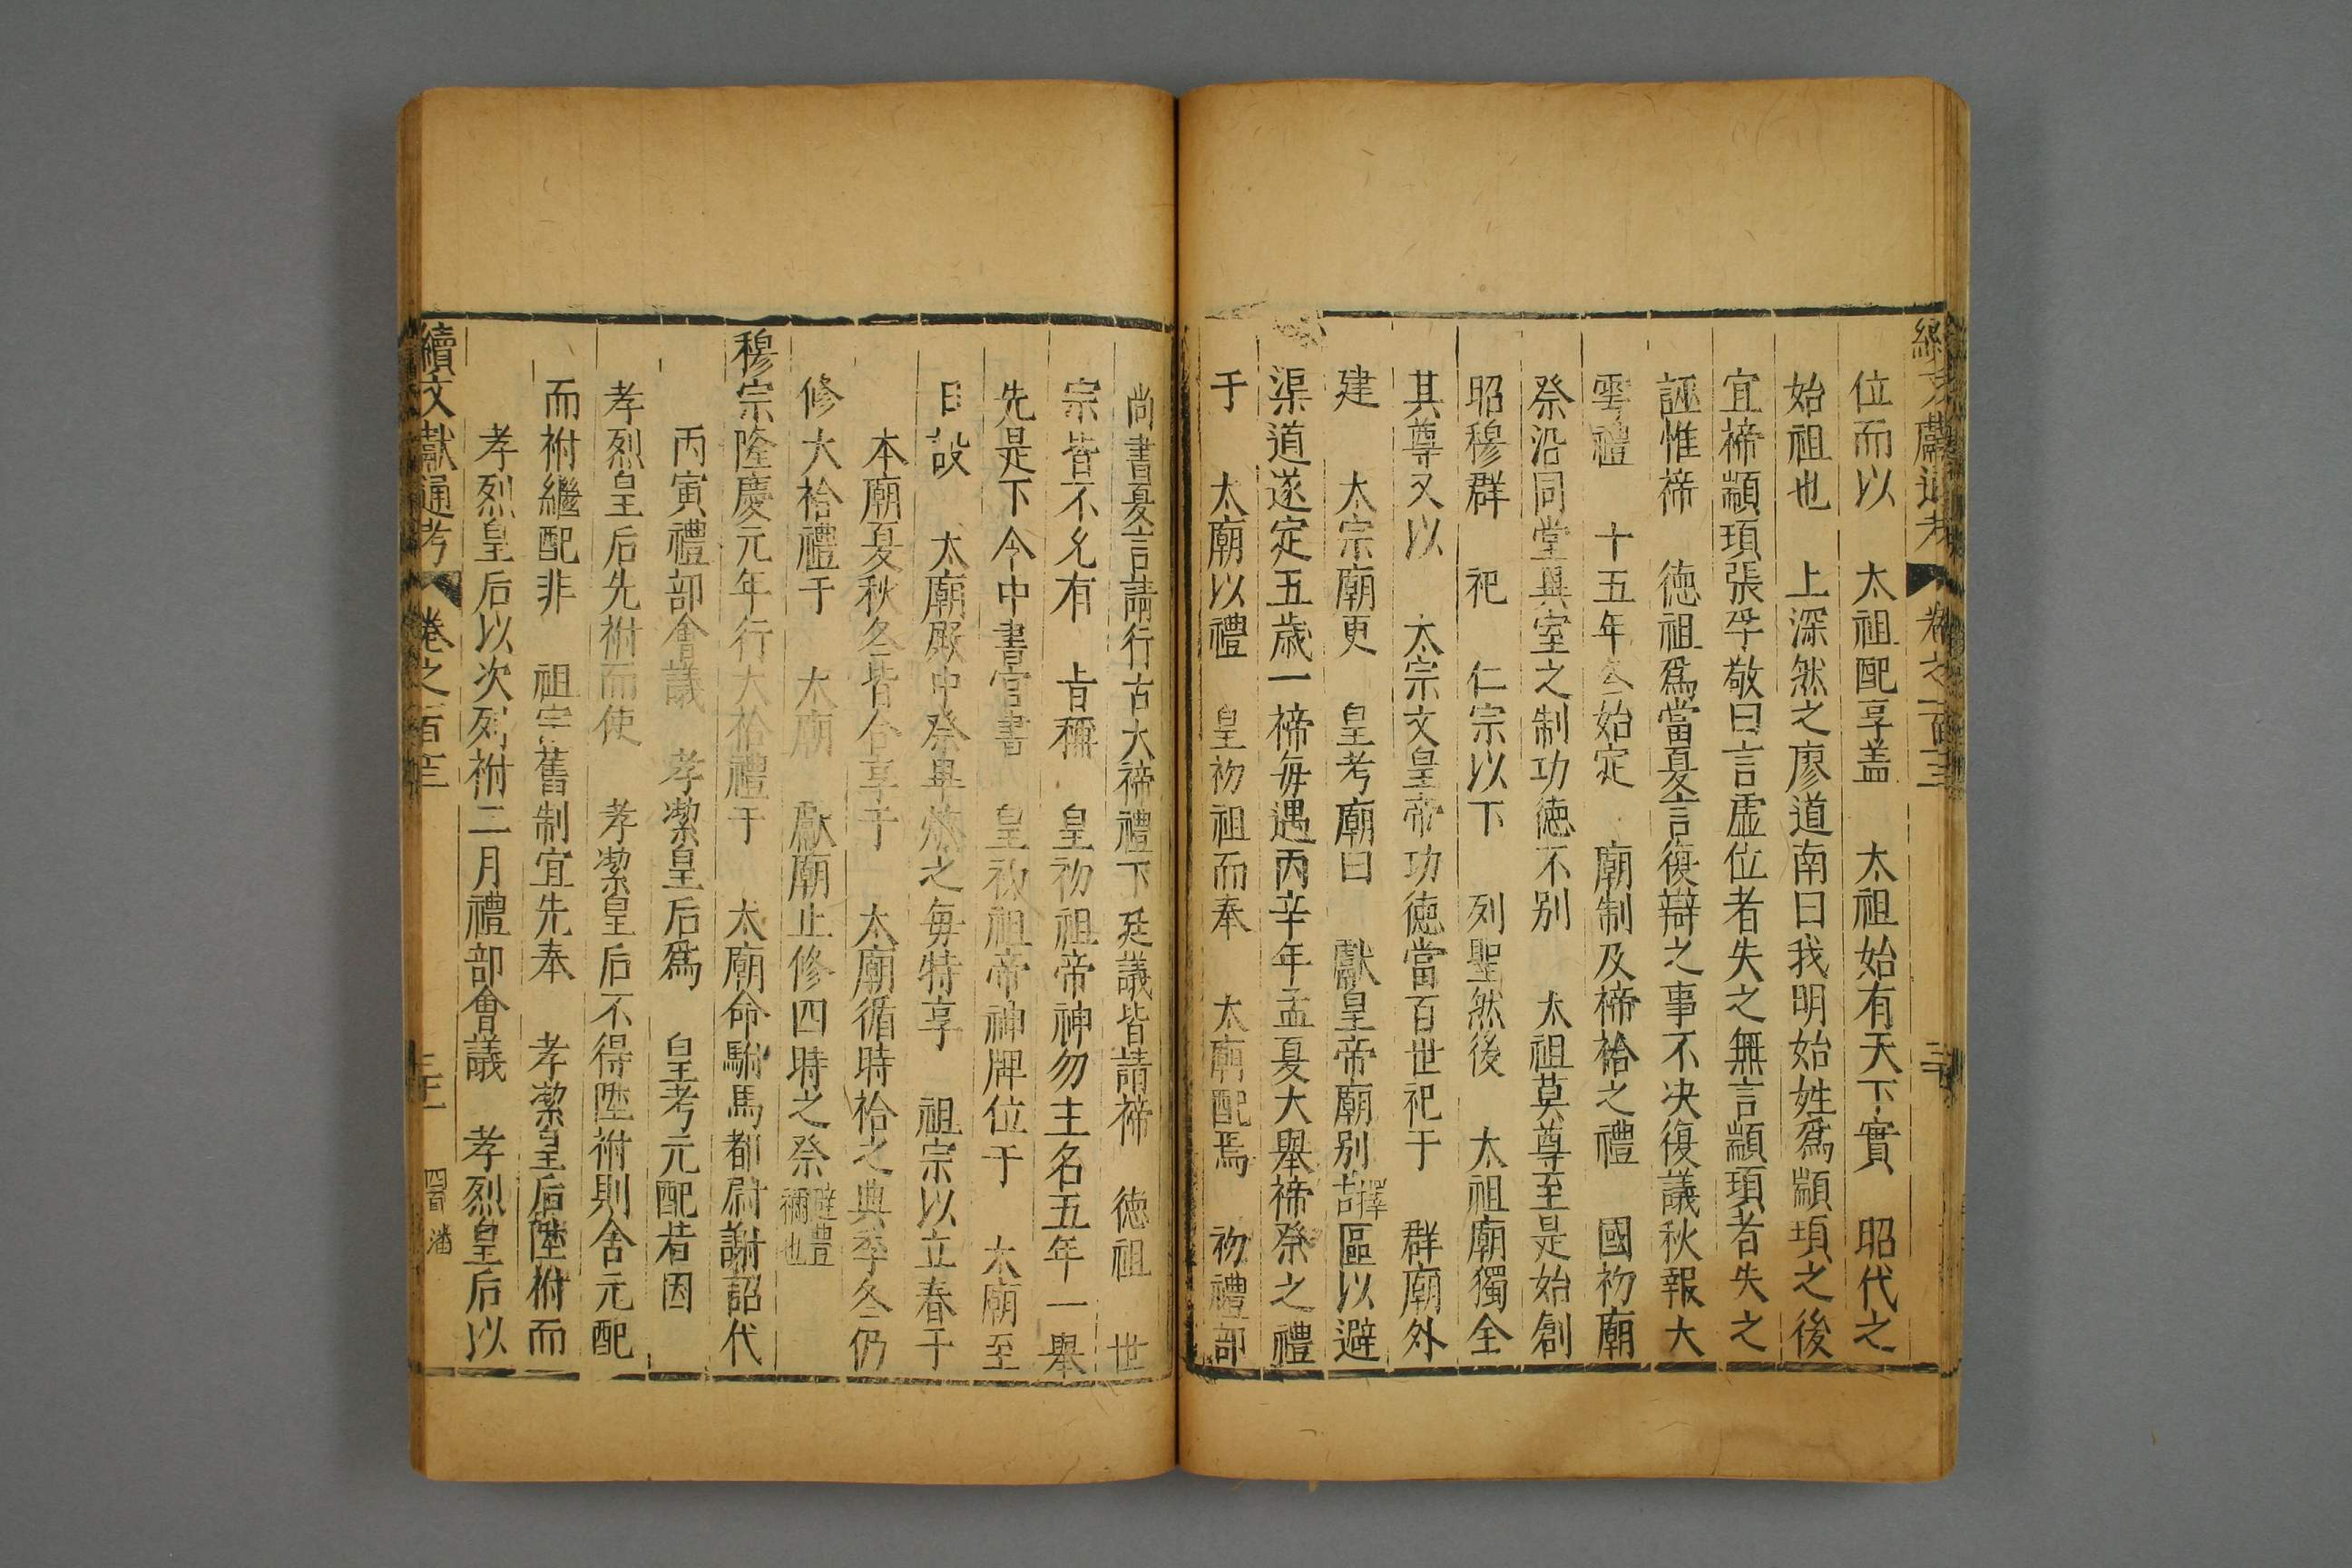 續文獻通考 卷之一百三 二十
位而以 太祖配享盖 太祖始有天下實 昭代之
始祖也 上深然之廖道南曰我明始姓爲顓頊之後
宜禘顓頊張孚敬曰言虛位者失之無言顓頊者失之
誣惟禘 德祖爲當夏言復辯之事不决復議秋報大
雩禮 十五年冬始定 廟制及禘祫之禮 國初廟
祭沿同堂異室之制功德不别 太祖莫尊至是始創
昭穆群 祀 仁宗以下 列聖然後 太祖廟獨全
其尊又以 太宗文皇帝功德當百世祀于 群廟外
建 太宗廟更 皇考廟曰 獻皇帝廟别擇吉區以避
渠道遂定五歲一禘每遇丙辛年孟夏大舉禘祭之禮
于 太廟以禮 皇初祖而奉 太廟配焉 初禮部
尚書夏言請行古大禘禮下廷議皆請禘 德祖 世
宗皆不允有 旨稱 皇初祖帝神勿主名五年一舉
先是下令中書官書 皇初祖帝神牌位于 太廟至
日設 太廟殿中祭畢燎之每特享 祖宗以立春于
本廟夏秋冬皆合享于 太廟循時祫之典季冬仍
修大祫禮于 太廟 獻廟止修四時之祭避禮禰也
穆宗隆慶元年行大祫禮于 太廟命駙馬都尉謝詔代
丙寅禮部會議 孝潔皇后爲 皇考元配若因
孝烈皇后先祔而使 孝潔皇后不得陞祔則舍元配
而祔繼配非 祖宗舊制宜先奉 孝潔皇后陞祔而
孝烈皇后以次列祔二月禮部會議 孝烈皇后以
續文獻通考 卷之一百三 潘